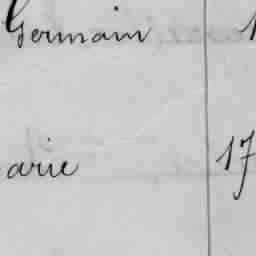 Germain 1
arie 17